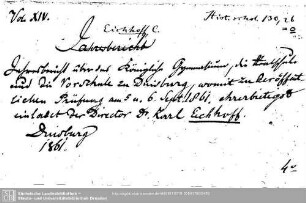 Vol XIV.
Hist. schol 130, 26
Eichhoff C.
Jahresbericht
Jahresbericht über das Königliche Gymnasium, die Realschule
und die Vorschule zu Duisburg, womit zu der öffent-
lichen Prüfung am 5 u. 6. Sept. 1861. ehrerbietigst
einladet der Director Dr. Karl Eichhoff.
Duisburg
1861.
4º
Sächsische Landesbibliothek -
Staats- und Universitätsbibliothek Dresden